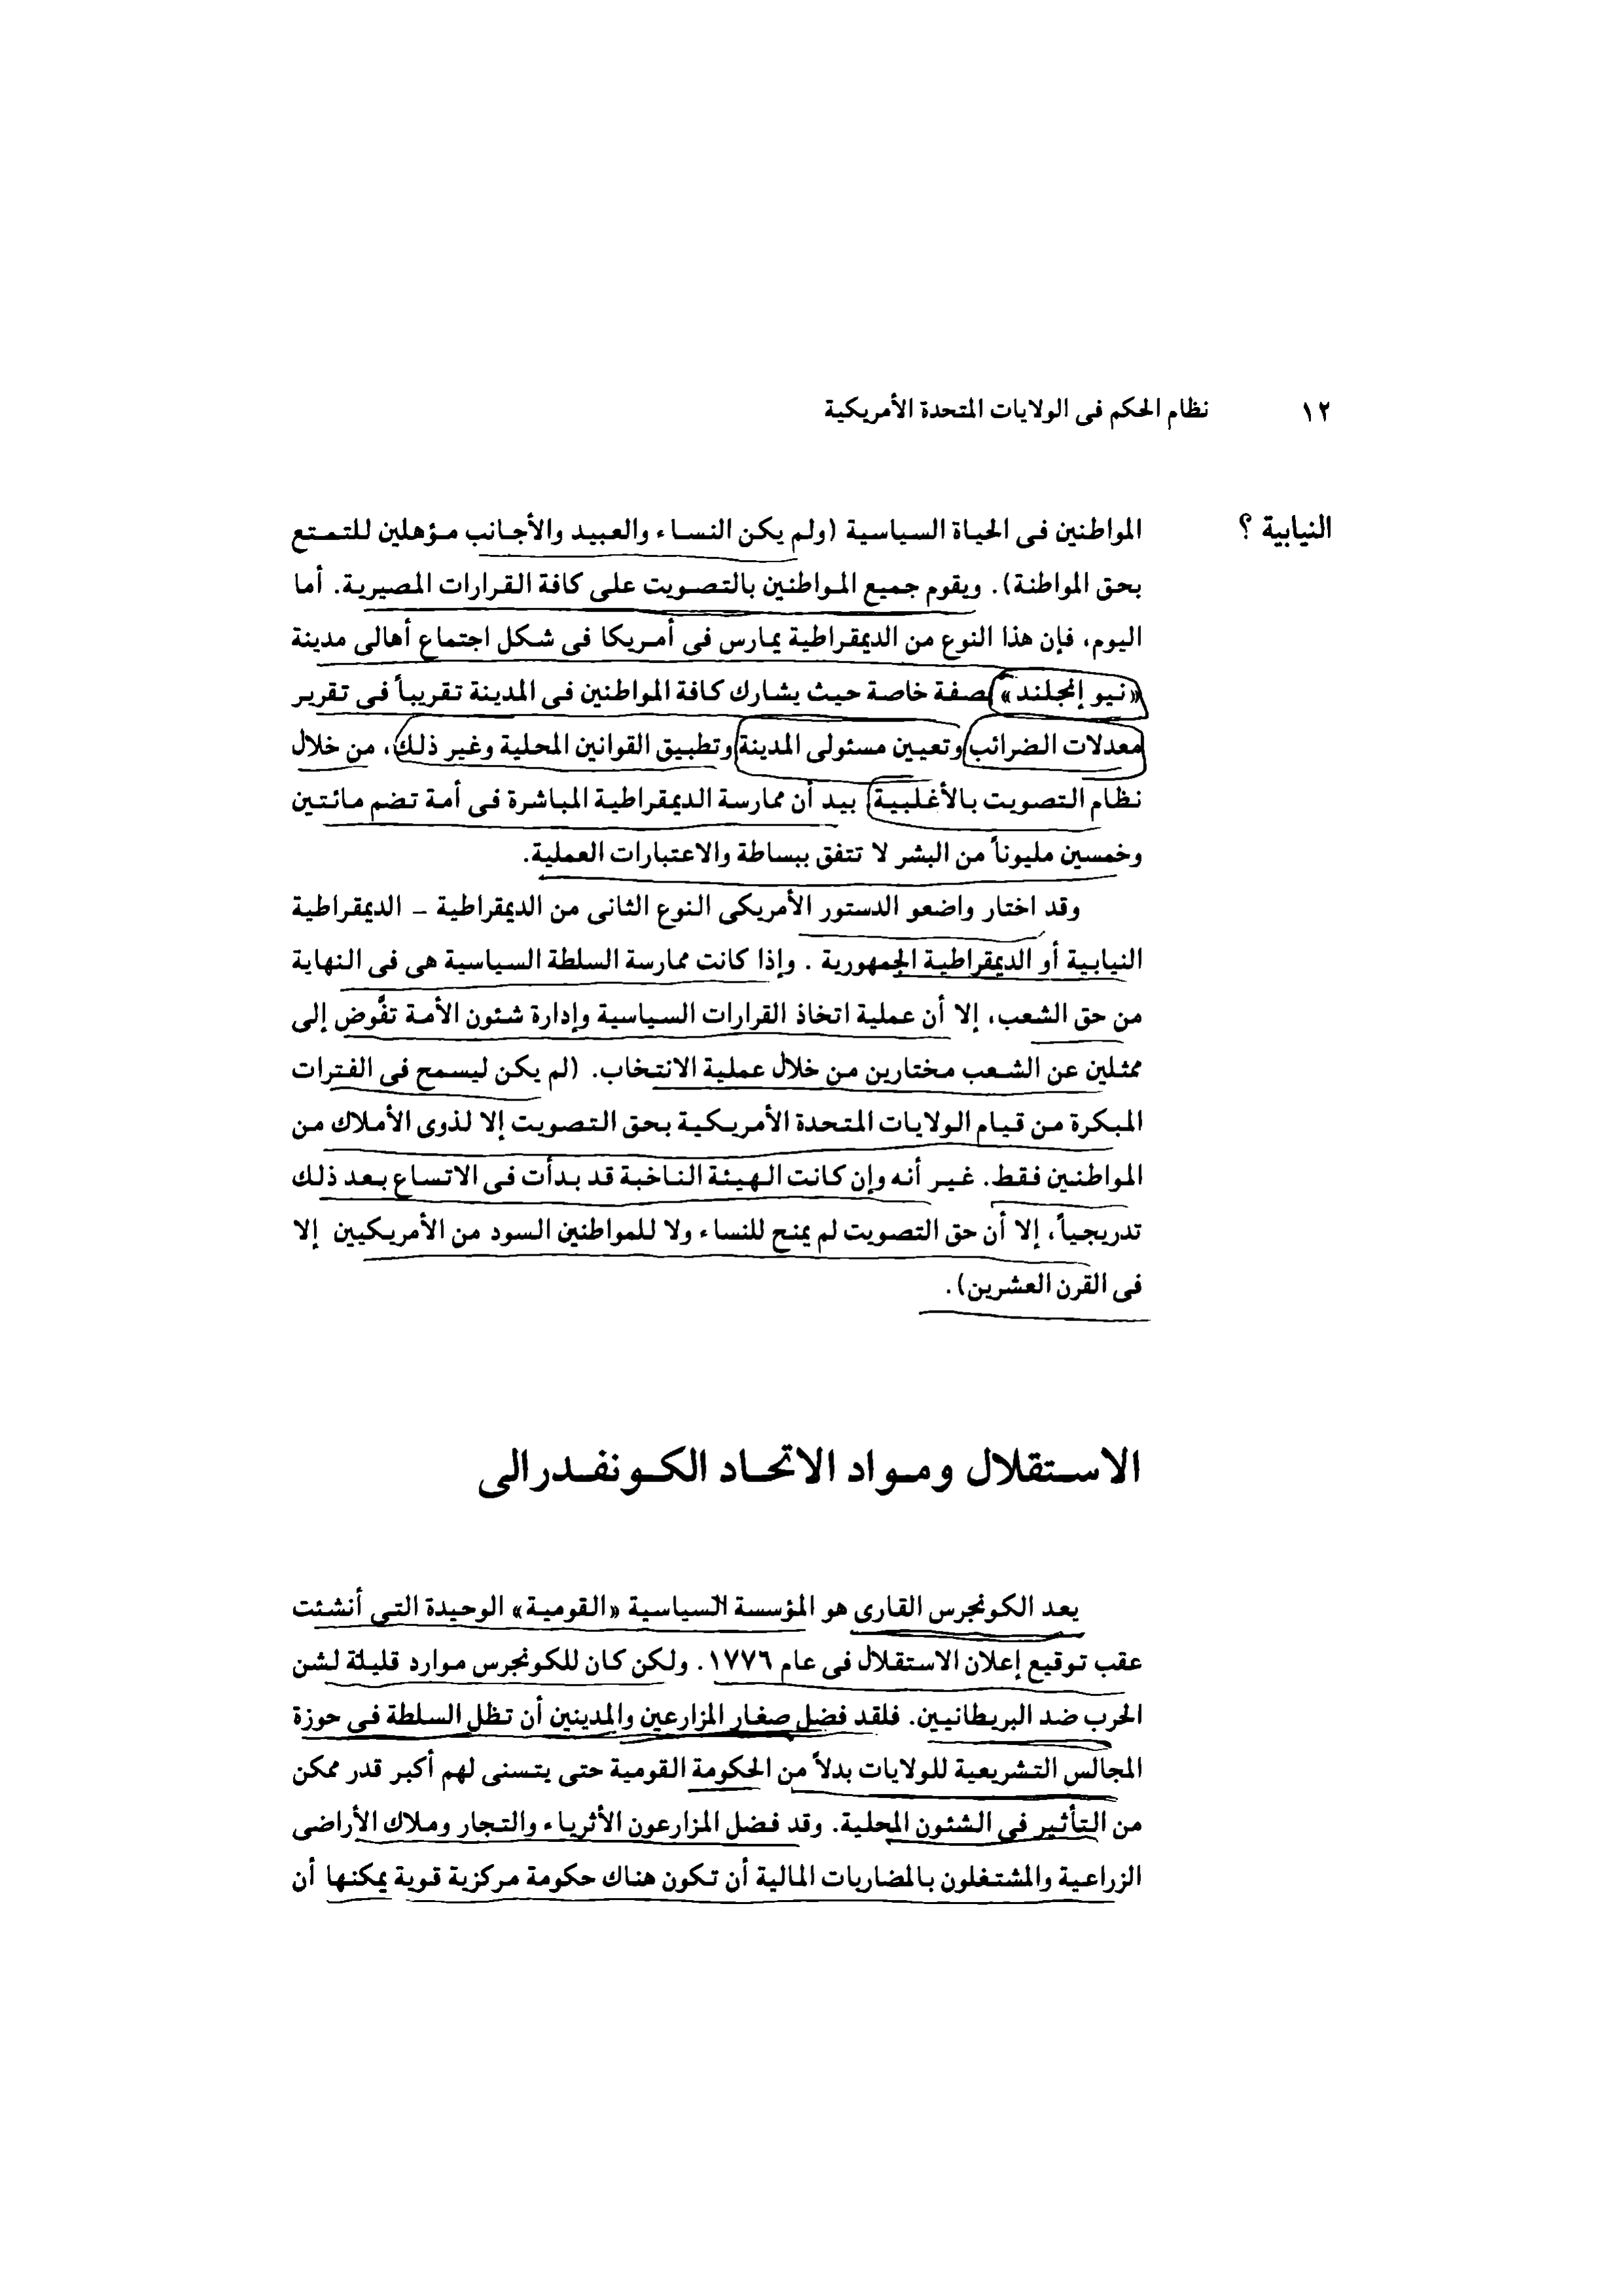 ١٢ نظام الحكم فى الولايات المتحدة الأمريكية
النيابية ؟
المواطنين فى الحياة السياسية (ولم يكن النساء والعبيد والأجانب مؤهلين للتمتع
بحق المواطنة). ويقوم جميع المواطنين بالتصويت على كافة القرارات المصيرية. أما
اليوم، فإن هذا النوع من الديمقراطية يمارس فى أمريكا فى شكل اجتماع أهالى مدينة
«نيو إنجلند» بصفة خاصة حيث يشارك كافة المواطنين فى المدينة تقريباً فى تقرير
معدلات الضرائب وتعيين مسئولى المدينة وتطبيق القوانين المحلية وغير ذلك، من خلال
نظام التصويت بالأغلبية، بيد أن ممارسة الديمقراطية المباشرة فى أمة تضم مائتين
وخمسين مليوناً من البشر لا تتفق ببساطة والاعتبارات العملية.
وقد اختار واضعو الدستور الأمريكى النوع الثانى من الديمقراطية – الديمقراطية
النيابية أو الديمقراطية الجمهورية . وإذا كانت ممارسة السلطة السياسية هى فى النهاية
من حق الشعب، إلا أن عملية اتخاذ القرارات السياسية وإدارة شئون الأمة تفَّوض إلى
ممثلين عن الشعب مختارين من خلال عملية الانتخاب. (لم يكن ليسمح فى الفترات
المبكرة من قيام الولايات المتحدة الأمريكية بحق التصويت إلا لذوى الأملاك من
المواطنين فقط. غير أنه وإن كانت الهيئة الناخبة قد بدأت فى الاتساع بعد ذلك
تدريجياً، إلا أن حق التصويت لم يمنح للنساء ولا للمواطنين السود من الأمريكيين إلا
فى القرن العشرين).
الاستقلال ومواد الاتحاد الكونفدرالى
يعد الكونجرس القارى هو المؤسسة السياسية «القومية» الوحيدة التى أنشئت
عقب توقيع إعلان الاستقلال فى عام ١٧٧٦. ولكن كان للكونجرس موارد قليلة لشن
الحرب ضد البريطانيين. فلقد فضل صغار المزارعين والمدينين أن تظل السلطة فى حوزة
المجالس التشريعية للولايات بدلاً من الحكومة القومية حتى يتسنى لهم أكبر قدر ممكن
من التأثير فى الشئون المحلية. وقد فضل المزارعون الأثرياء والتجار وملاك الأراضى
الزراعية والمشتغلون بالمضاربات المالية أن تكون هناك حكومة مركزية قوية يمكنها أن